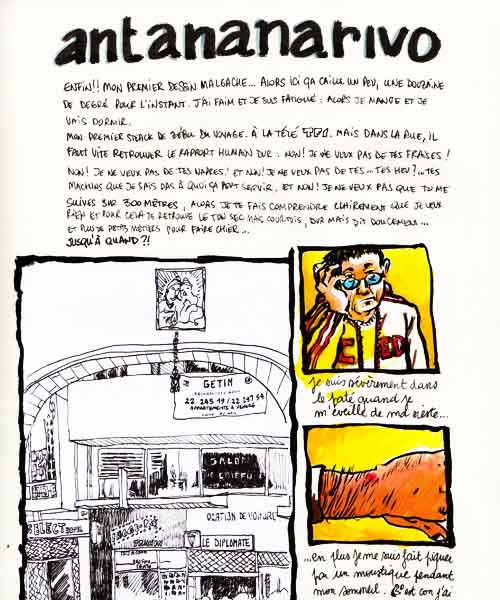 antananarivo
ENFIN!! MON PREMIER DESSIN MALGACHE... ALORS ICI ÇA CAILLE UN PEU, UNE DOUZAINE
DE DEGRÉ POUR L'INSTANT. J'AI FAIM ET JE SUIS FATIGUÉ : ALORS JE MANGE ET JE
VAIS DORMIR.
MON PREMIER STEACK DE ZÉBU DU VOYAGE. À LA TÉLÉ TF1. MAIS DANS LA RUE, IL
FAUT VITE RETROUVER LE RAPPORT HUMAIN DUR : NON! JE NE VEUX PAS DE TES FRAISES!
NON! JE NE VEUX PAS DE TES NAPPES! ET NON! JE NE VEUX PAS DE TES... TES HEU?... TES
MACHINS QUE JE SAIS PAS À QUOI ÇA PEUT SERVIR. ET NON! JE NE VEUX PAS QUE TU ME
SUIVES SUR 300 MÈTRES, ALORS JE TE FAIS COMPRENDRE CLAIREMENT QUE JE VEUX
RIEN ET POUR CELA JE RETROUVE LE TON SEC MAIS COURTOIS, DUR MAIS DIT DOUCEMENT...
ET PLUS DE PETITS MÉTIERS POUR FAIRE CHIER...
JUSQU'À QUAND?!
GETIM
22 245 19 / 22 247 54
APPARTEMENTS À VENDRE
SALON
DE COIFFU
ELECT HOTEL
OCATION DE VOITURE
LE DIPLOMATE
je suis sévèrement dans
le paté quand je
m'éveille de ma sieste...
...en plus je me suis fait piquer
par un moustique pendant
mon sommeil. C'est con j'ai